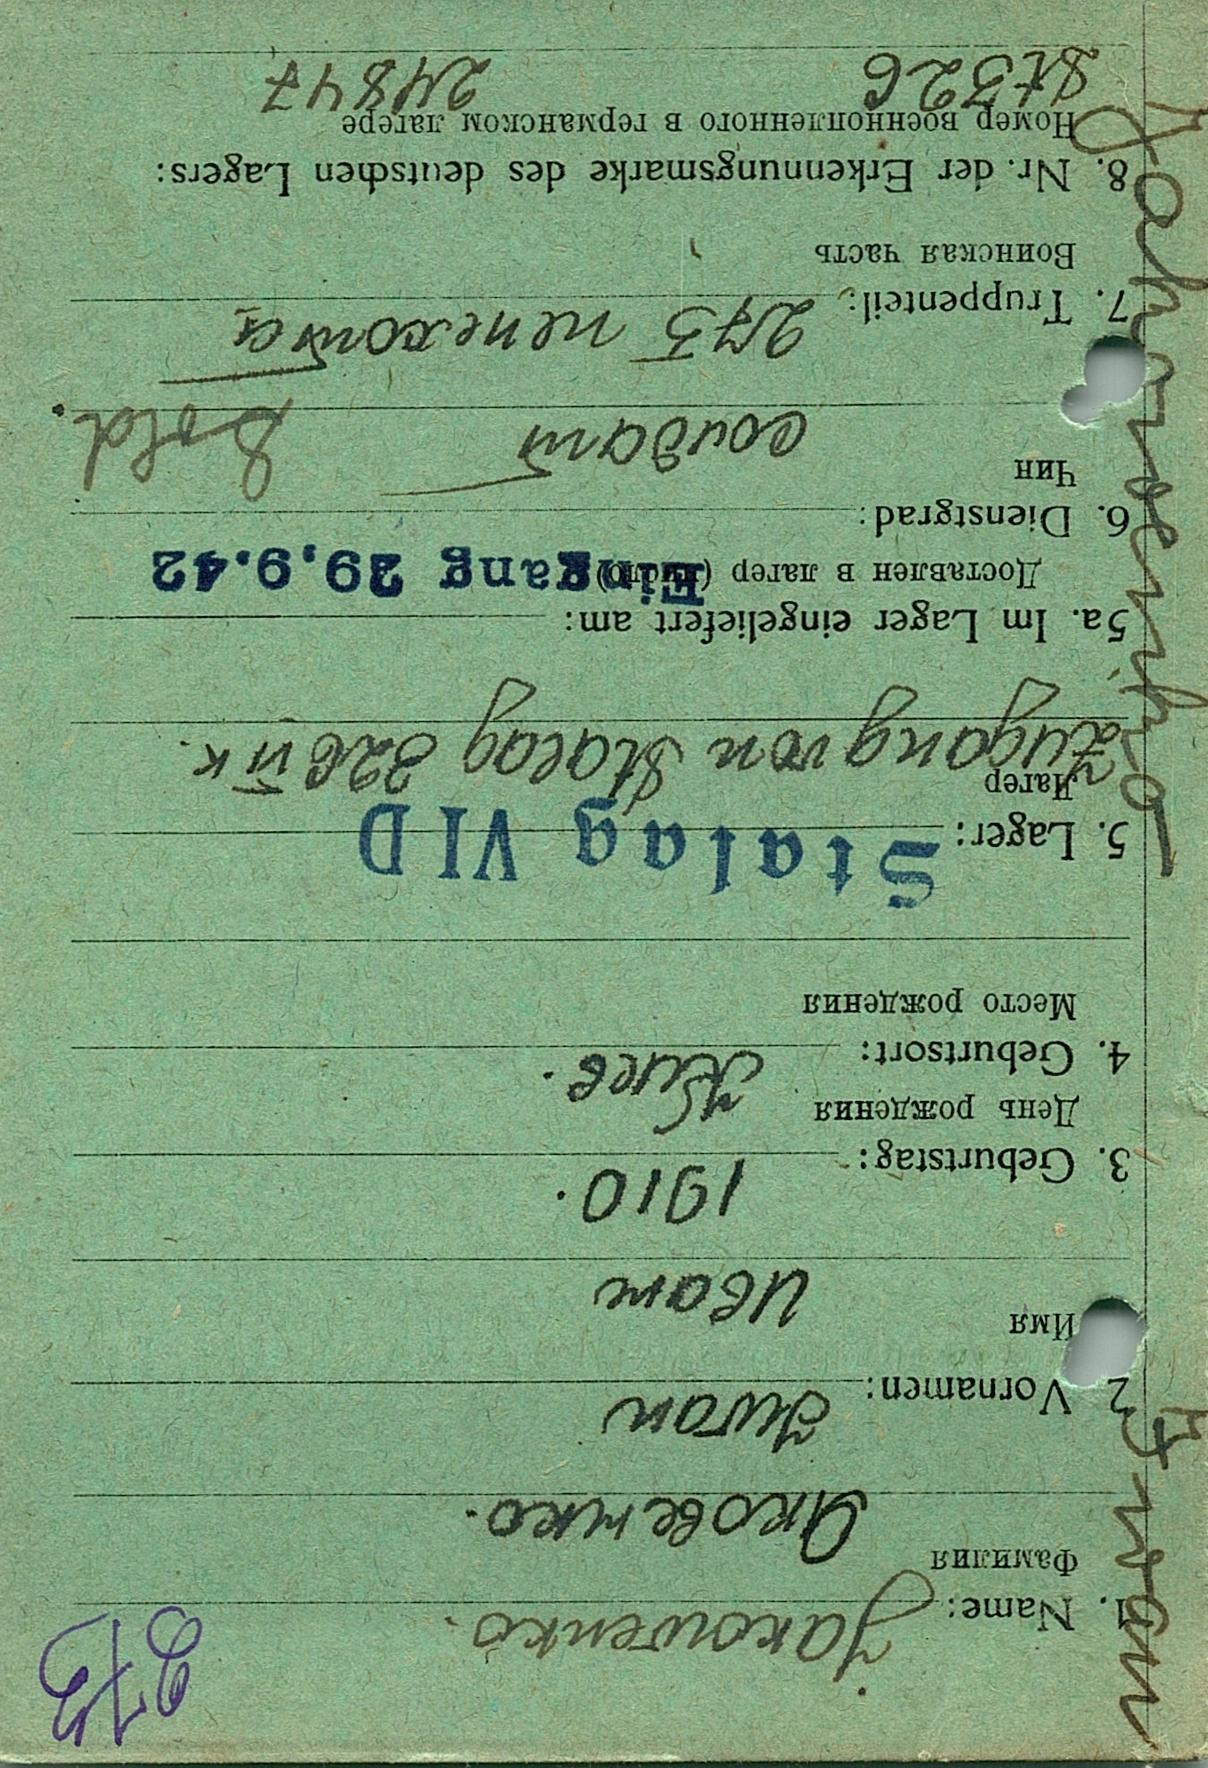 273
1. Name: Jakowenko.
Фамилия Яковенко.
2. Vornamen: Iwan
Имя Иван
3. Geburtstag: 1910.
День рождения
4. Geburtsort: Киев.
Место рождения
5. Lager: Stalag VID
Лагер Zugang von Stalag 326 VI K.
5a. Im Lager eingeliefert am:
Доставлен в лагер (число) Eingang 29.9.42
6. Dienstgrad:
Чин солдат Sold.
7. Truppenteil: 275 пехота
Воинская часть
8. Nr. der Erkennungsmarke des deutschen Lagers:
Номер военнопленного в германском лагере
St 326 24847
Iwan Jakowenko